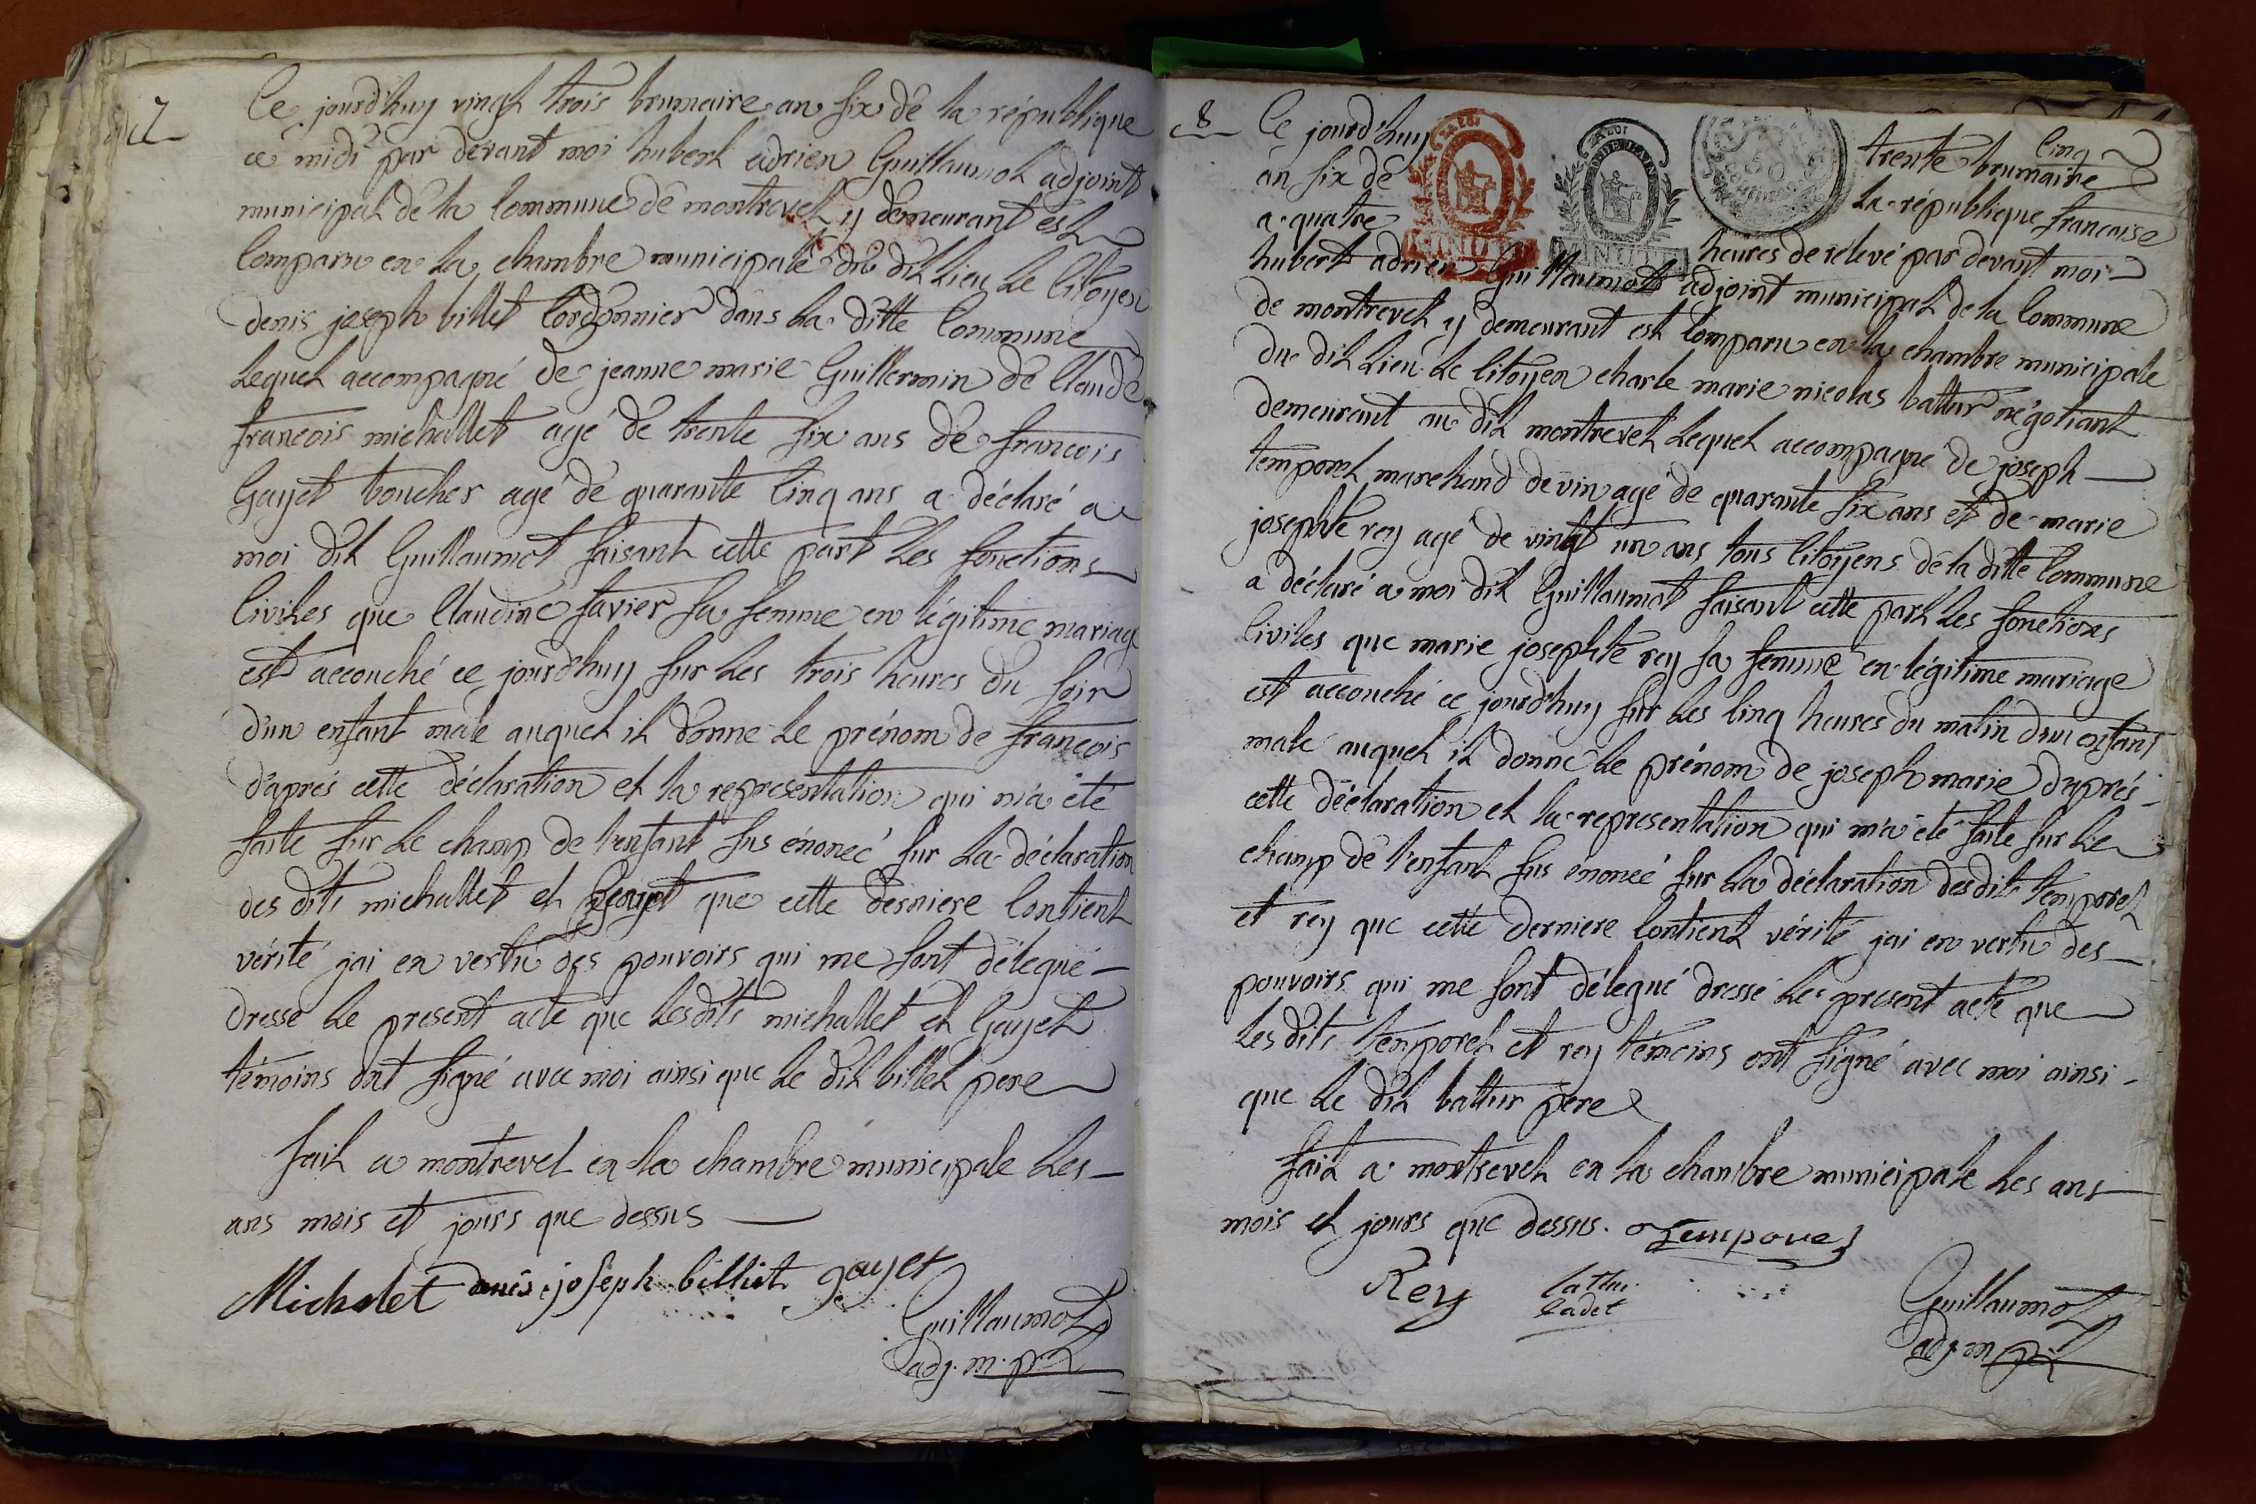 7
Ce jourd'huy vingt trois brumaire an six de la république
a midi par devant moi hubert adrien Guillaumot adjoint
municipal de la Commune de montrevel y demeurant est
Comparu en la chambre municipale du dit lieu le Citoyen
denis joseph billet Cordonnier dans la ditte Commune
lequel accompagné de jeanne marie Guillermin de Claude
francois michallet agé de trente six ans de francois
Gayet boucher agé de quarante Cinq ans a déclaré a
moi dit Guillaumot faisant cette part les fonctions
Civiles que Claudine favier sa femme en légitime mariage
est accouché ce jourd'huy sur les trois heures du soir
d'un enfant male auquel il donne le prénom de francois
d'aprés cette déclaration et la representation qui m'a été
faite sur le champ de l'enfant sus énoncé sur la déclaration
des dits michallet et Gayet que cette derniere Contient
vérité jai en vertu des pouvoirs qui me sont délegué
dressé le present acte que lesdits michallet et Gayet
témoins ont signé avec moi ainsi que le dit billet pere
fait a montrevel en la chambre municipale les
ans mois et jours que dessus
Michalet denis joseph billiet gayet
Guillaumot
adj. m. pal
8
Ce jourd'huy trente Cinq brumaire
an six de la république francaise
a quatre heures de relevé par devant moi
hubert adrien Guillaumot adjoint municipal de la Commune
de montrevel y demeurant est Comparu en la chambre municipale
du dit lieu le Citoyen charle marie nicolas battur négotiant
demeurant au dit montrevel lequel accompagné de joseph
temporel marchand de vin agé de quarante six ans et de marie
josephte rey agé de vingt un ans tous Citoyens de la ditte Commune
a déclaré a moi dit Guillaumot faisant cette part les fonctions
Civiles que marie josephte rey sa femme en légitime mariage
est accouché ce jourd'huy sur les Cinq heures du matin d'un enfant
male auquel il donne le prénom de joseph marie d'aprés
cette déclaration et la representation qui m'a été faite sur le
champ de l'enfant sus énoncé sur la déclaration desdits temporel
et rey que cette derniere Contient vérité jai en vertu des
pouvoirs qui me sont délegué dressé les present acte que
les dits temporel et rey témoins ont signé avec moi ainsi
que le dit battur pere
fait a montrevel en la chambre municipale les ans
mois et jours que dessus.
Rey
cadet
Guillaumot
adj. m pal